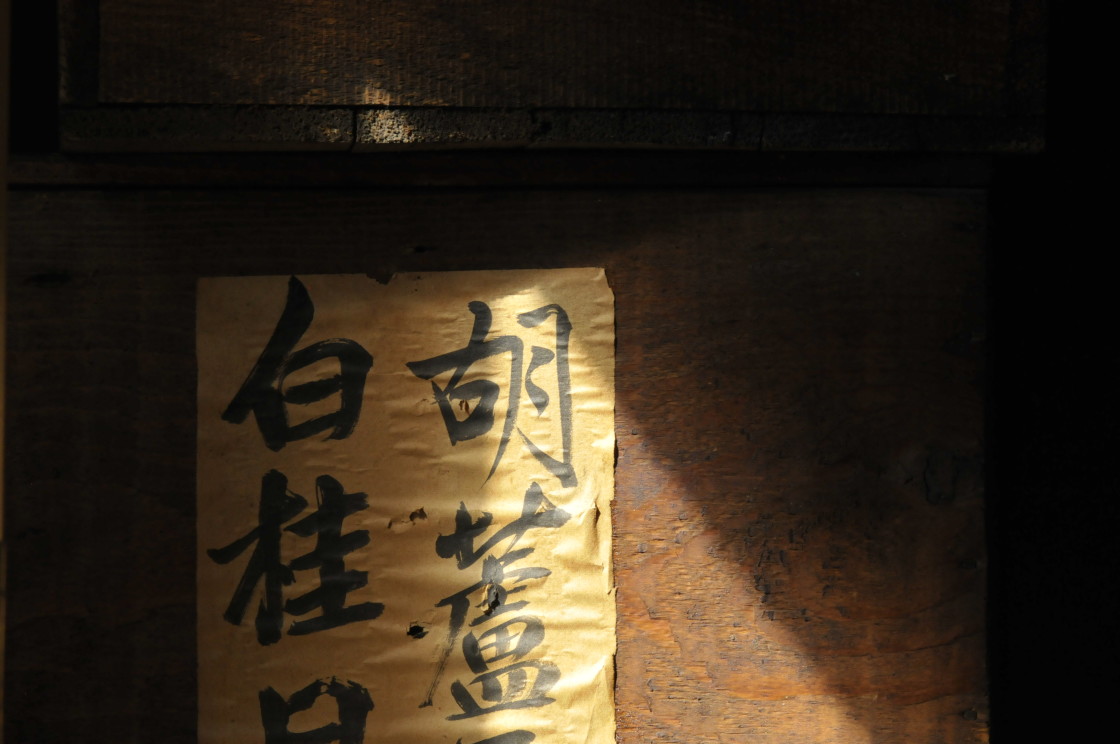 胡蘆
白桂